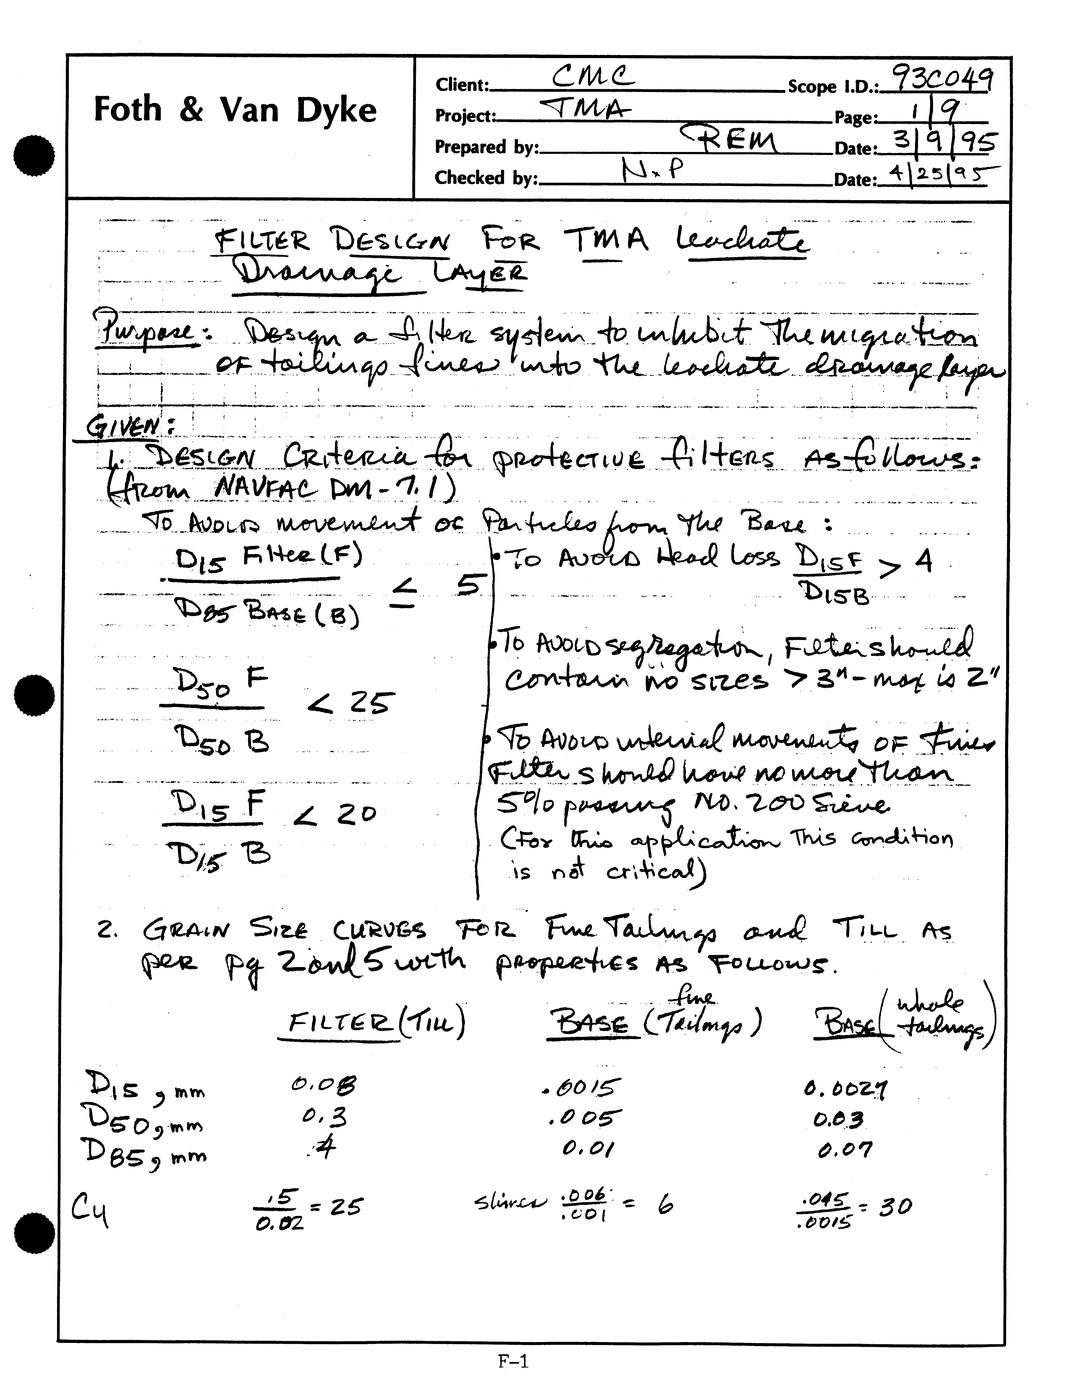 Foth & Van Dyke
Client: CMC Scope I.D.: 93C049
Project: TMA Page: 1/9
Prepared by: REM Date: 3/9/95
Checked by: N.P Date: 4/25/95
FILTER DESIGN FOR TMA Leachate
Drainage LAYER
Purpose: Design a filter system to inhibit the migration
of tailings fines into the leachate drainage layer
GIVEN:
1. DESIGN Criteria for PROTECTIVE filTERS AS follows:
(from NAVFAC DM-7.1)
To AVOID movement of Particles from the Base:
D15 Filter (F)
D85 BASE (B)
≤ 5
D50 F
D50 B
< 25
D15 F
D15 B
< 20
• To AVOID Head Loss D15F / D15B > 4
• To AVOID segregation, Filter should
contain no sizes > 3" - max is 2"
• To AVOID internal movements OF fines
Filter should have no more than
5% passing NO. 200 Sieve
(For this application This condition
is not critical)
2. GRAIN SIZE CURVES FOR Fine Tailings and TILL AS
per pg 2 and 5 with properties AS FOLLOWS.
FILTER (TILL) BASE (fine Tailings) BASE (whole tailings)
D15, mm 0.08 .0015 0.0027
D50, mm 0.3 .005 0.03
D85, mm 4 0.01 0.07
Cu .5/0.02 = 25 slimes .006/.001 = 6 .045/.0015 = 30
F-1